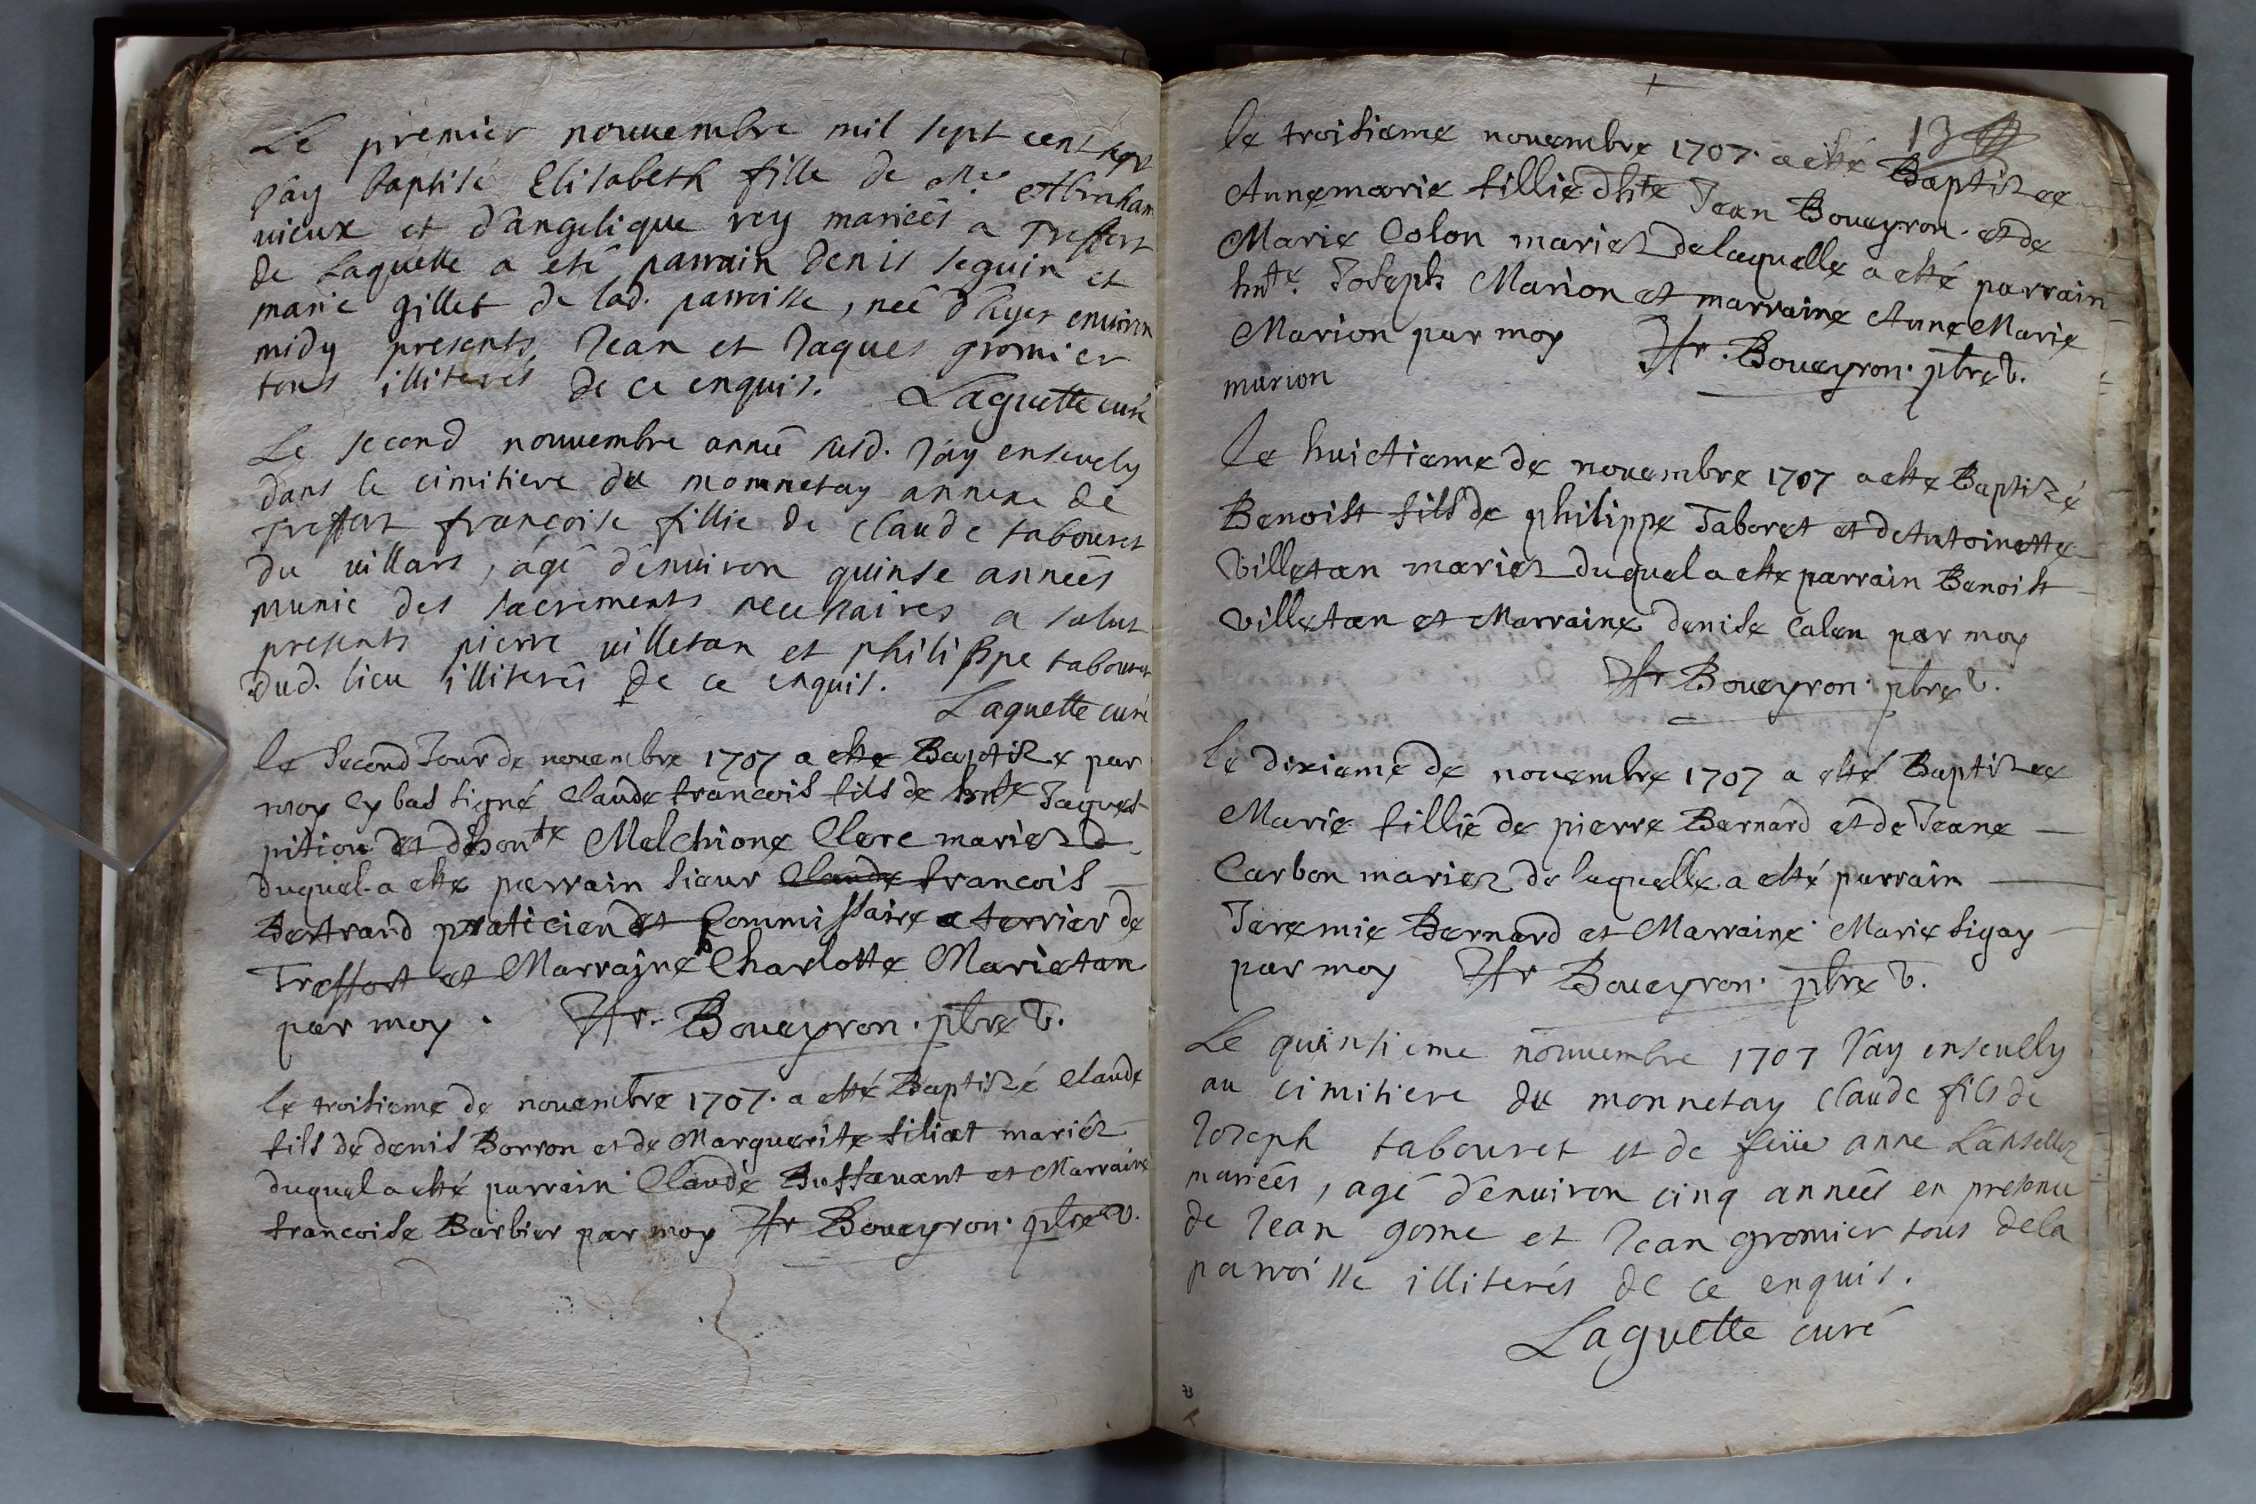 Le premier nouuembre mil sept cent sept
J'ay baptisé Elisabeth fille de Mre Abraham
uieux et d'angelique rey mariéés a Treffort
de Laquelle a eté parrain Denis seguin et
marie gillet de lad. parroisse, néé d'hyer enuiron
midy presents Jean et Jaques gromier
tous illiterés de ce enquis. Laguette curé
Le second nouuembre année susd. J'ay enseuely
dans le cimitiere du monnetay annexe de
Treffort françoise fillie de claude tabouret
du uillars, agé d'enuiron quinse annéés
munie des sacrements necessaires a salut
presents pierre uilletan et philippe tabouret
dud. lieu illiterés de ce enquis.
Laguette curé
le Second Jour de nouembre 1707 a esté Baptizé par
moy cy bas signé Claude francois fils de hnte Jaques
pition et dhonte Melchione Clerc mariez
duquel a esté parrain sieur Claude francois
Bertrand praticien et Commissaire a terrier de
Treffort et Marraine Charlotte Marietan
par moy. Fr. Boueyron. pbre v.
le troisieme de nouembre 1707. a esté Baptizé Claude
fils de denis Borron et de Marguerite filiat mariéz
duquel a esté parrain Claude Buffauant et Marraine
francoise Barbier par moy Fr Boueyron. pbre v.
13
le troisieme nouembre 1707. a esté Baptizee
Annemarie fillie dhte Jean Boueyron. et de
Marie Colon mariez De laquelle a esté parrain
hnte. Joseph Marion et marraine Anne Marie
Marion par moy Fr. Boueyron. pbre v.
marion
Le huictieme de nouembre 1707 a este Baptizé
Benoist fils de philippe Taboret et de Antoinette
Villetan mariez Duquel a esté parrain Benoist
villetan et Marraine denise Calon par moy
Fr Boueyron. pbre v.
le dixieme de nouembre 1707 a esté Baptizee
Marie fillie de pierre Bernard et de Jeane
Carbon mariez de laquelle a esté parrain
Jeremie Bernard et Marraine Marie sigay
par moy Fr Boueyron. pbre v.
Le quinsieme nouuembre 1707 J'ay enseuely
au cimitiere du monnetay claude fils de
Joseph tabouret et de feüe anne
mariéés, agé d'enuiron cinq annéés en presence
de Jean gome et Jean gromier tous de la
parroisse illiterés de ce enquis.
Laguette curé